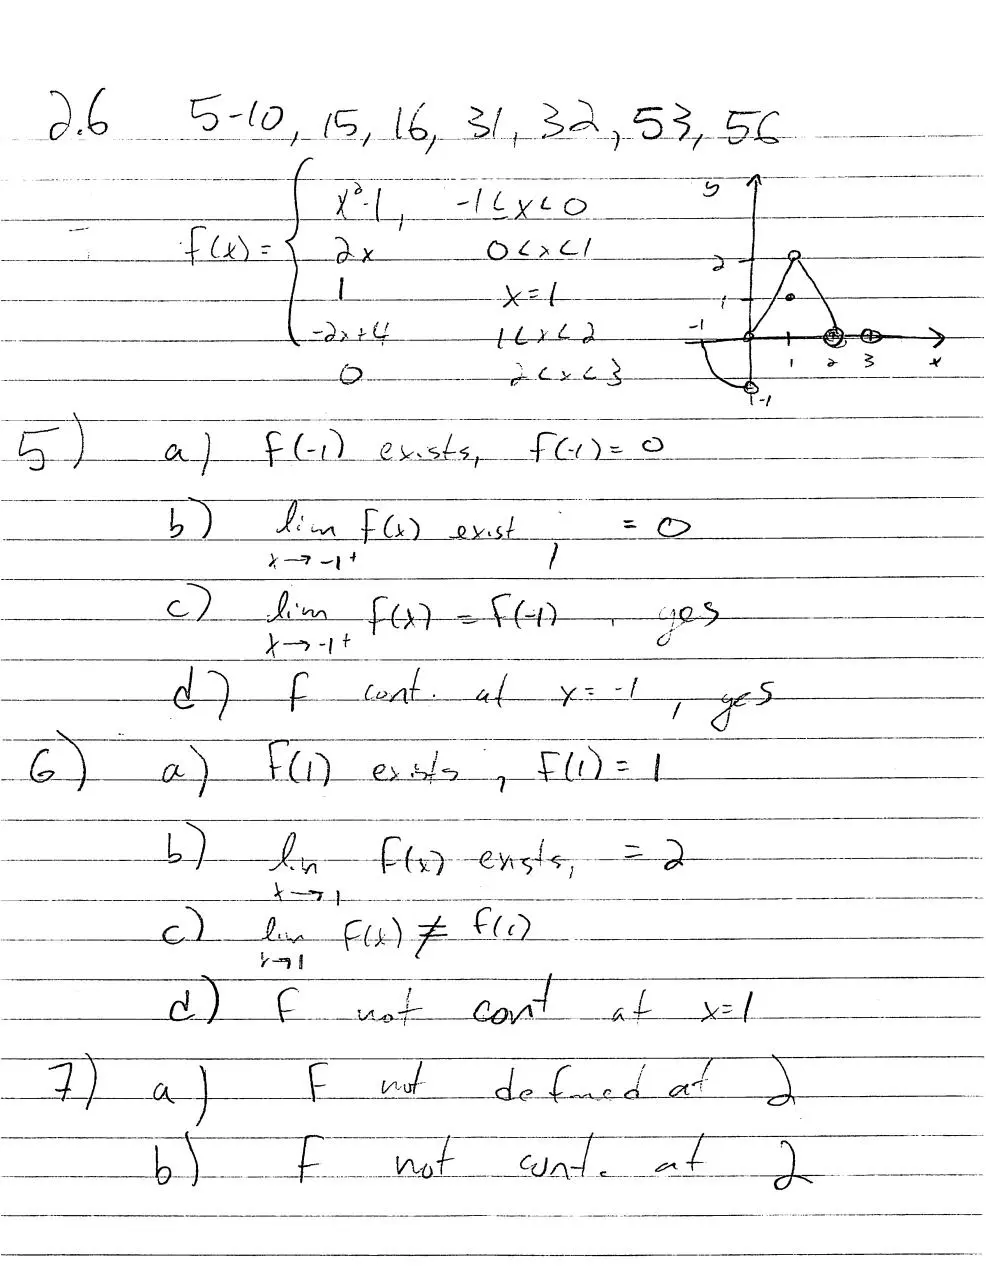 2.6 5-10, 15, 16, 31, 32, 53, 56
f(x) = { x²-1, -1 ≤ x < 0
2x 0 < x < 1
1 x = 1
-2x+4 1 < x < 2
0 2 < x < 3
y
2
1
-1
1 2 3 x
-1
5) a) f(-1) exists, f(-1) = 0
b) lim f(x) exist, = 0
x→-1⁺
c) lim f(x) = f(-1), yes
x→-1⁺
d) f cont. at x = -1, yes
6) a) f(1) exists, f(1) = 1
b) lim f(x) exists, = 2
x→1
c) lim f(x) ≠ f(1)
x→1
d) f not cont at x=1
7) a) f not defined at 2
b) f not cont. at 2